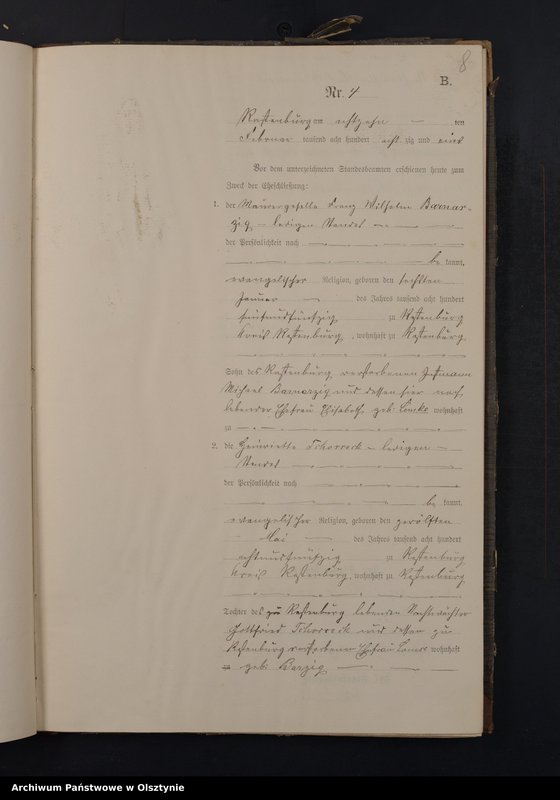 8
B.
Nr. 4
Rastenburg am achtzehn ten
Februar tausend acht hundert acht zig und eins
Vor dem unterzeichneten Standesbeamten erschienen heute zum
Zweck der Eheschließung:
1. der Maurergeselle Franz Wilhelm Barnar-
zig – ledigen Standes
der Persönlichkeit nach
be kannt,
evangelischer Religion, geboren den sechsten
Januar des Jahres tausend acht hundert
fünfundfünfzig zu Rastenburg
Kreis Rastenburg, wohnhaft zu Rastenburg
Sohn des Rastenburg verstorbenen
Michael Barnarzig und dessen hier noch
lebender Ehefrau Elisabeth geb: Lemke wohnhaft
zu
2. die Henriette Schorreck – ledigen
Standes
der Persönlichkeit nach
be kannt,
evangelischer Religion, geboren den zwölften
Mai des Jahres tausend acht hundert
achtundfünfzig zu Rastenburg
Kreis Rastenburg, wohnhaft zu Rastenburg
Tochter des zu Rastenburg lebenden Nachtwächter
Gottfried Schorreck und dessen zu
Rastenburg verstorbenen Ehefrau wohnhaft
zu geb: Barzig
Archiwum Państwowe w Olsztynie